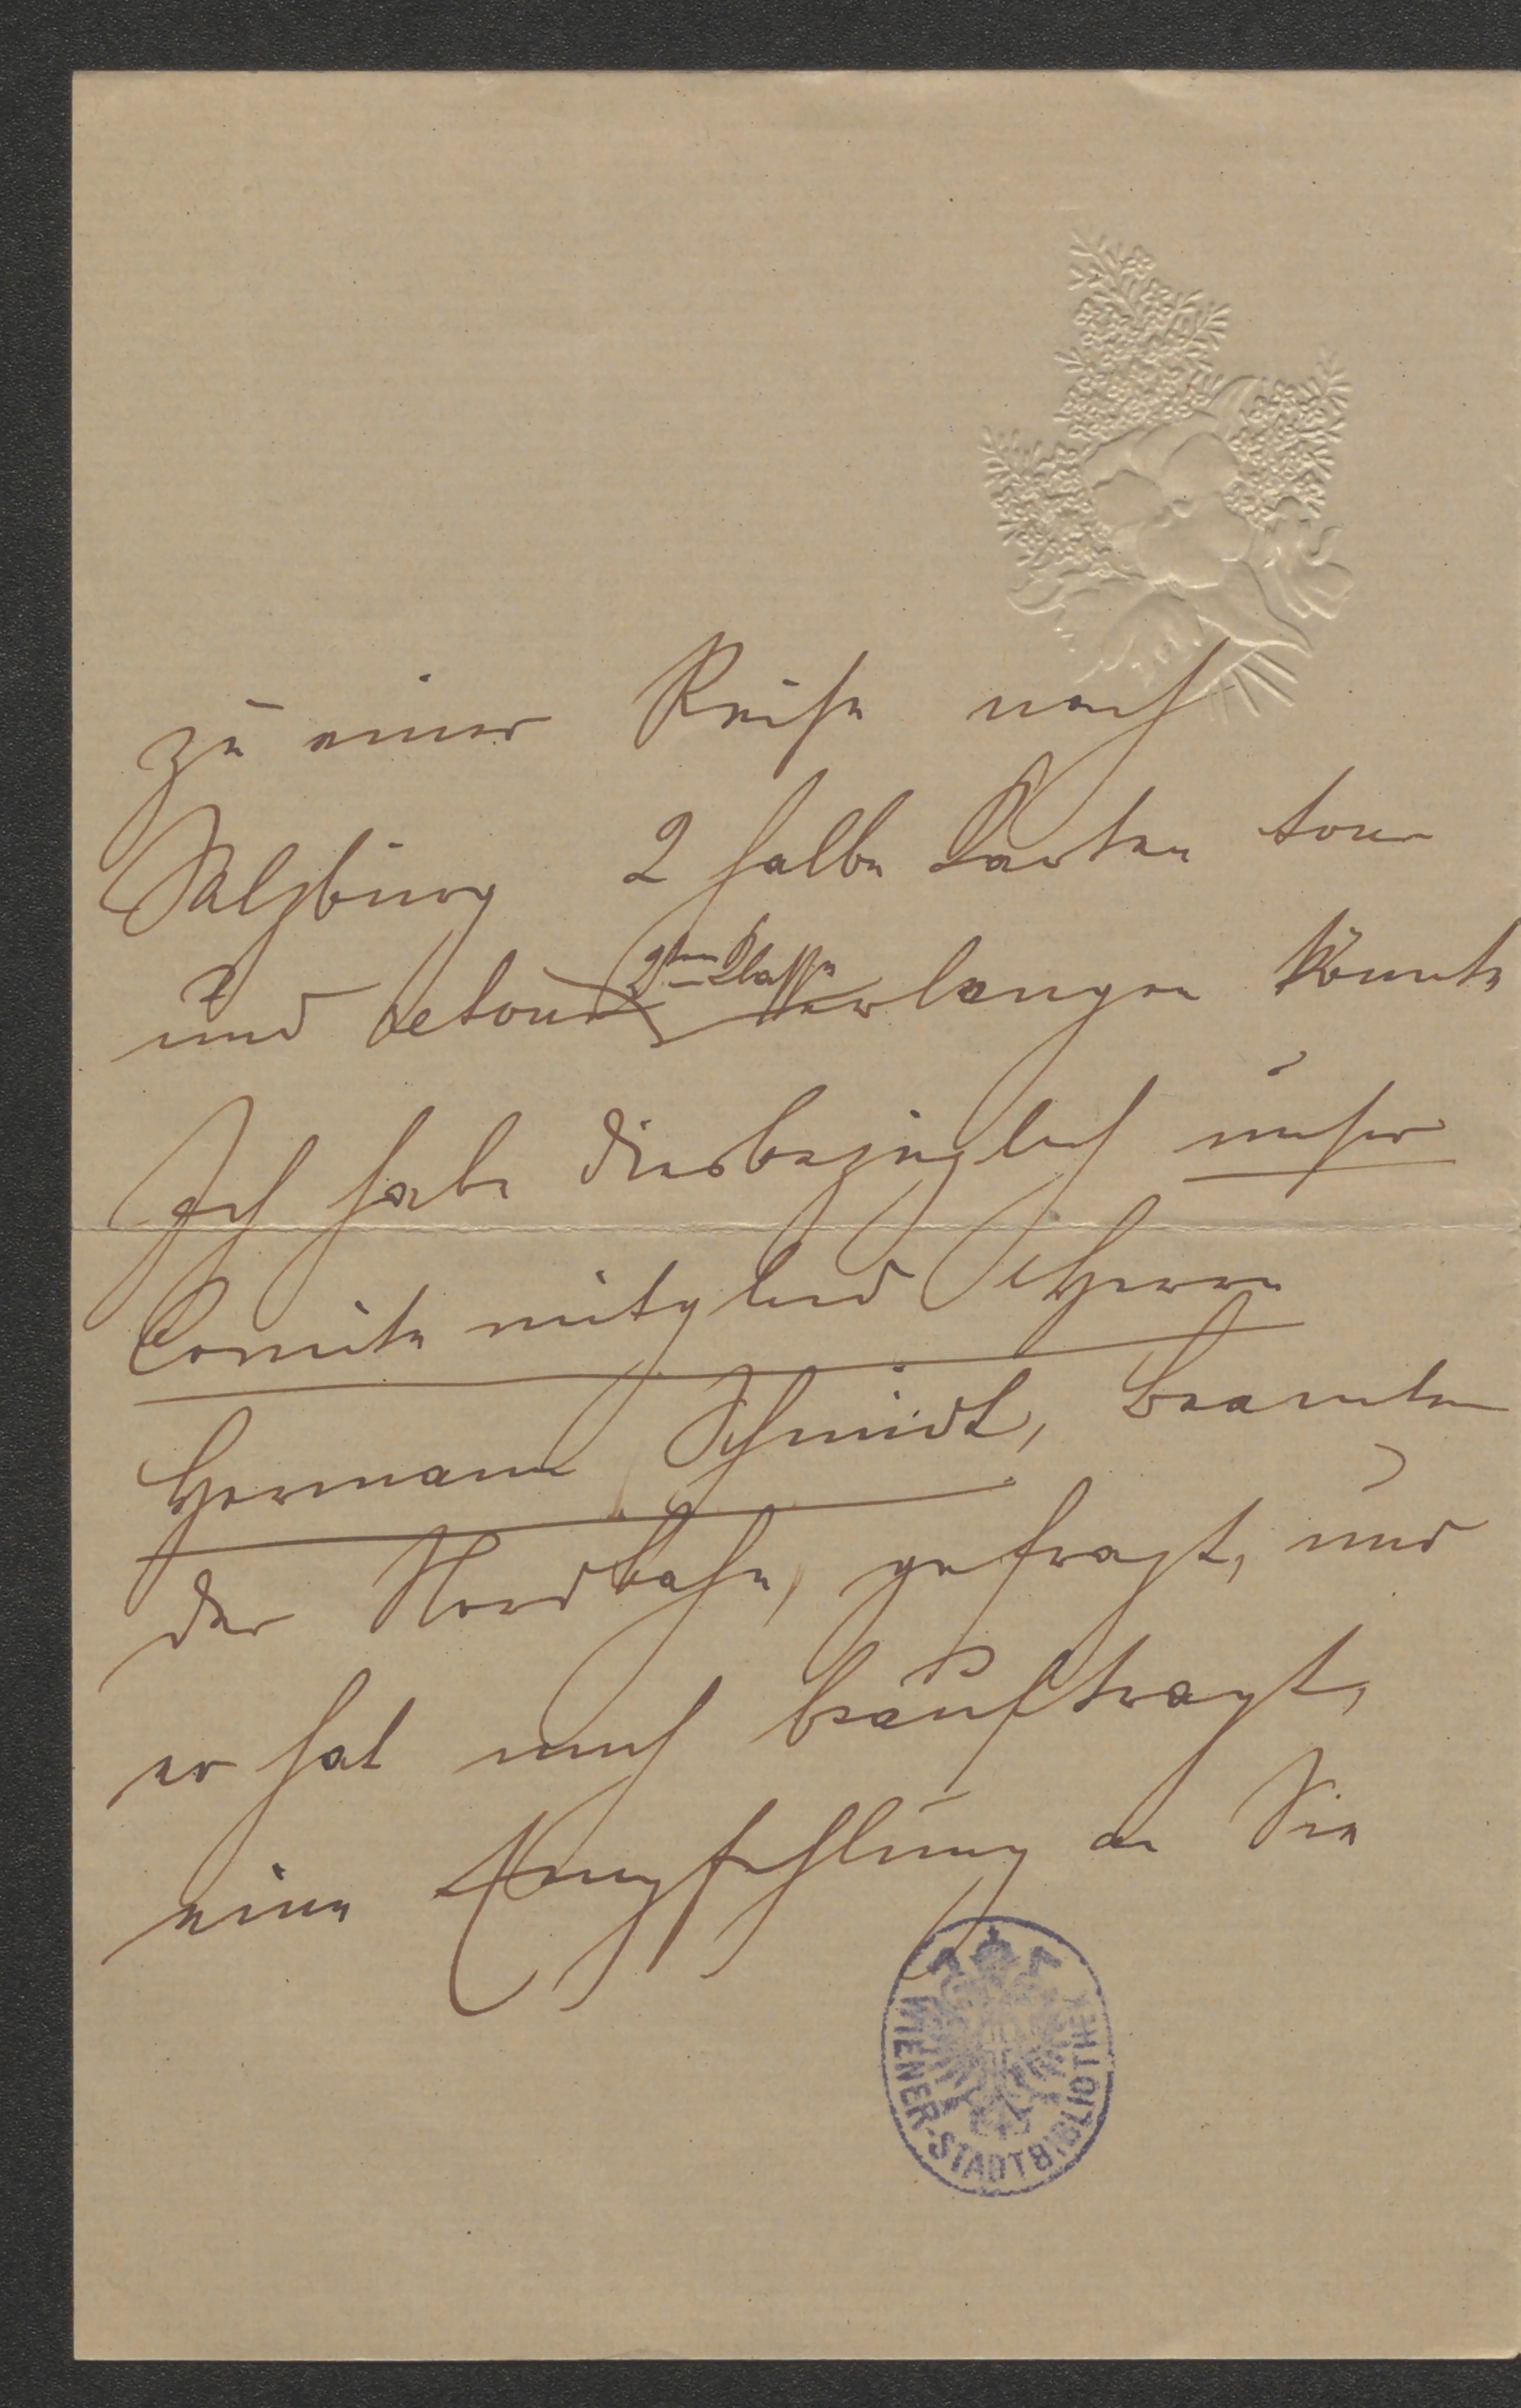 zu einer Reise nach
Salzburg 2 halbe Karten tour
2ten Classe
und retour erlangen könnte
Ich habe diesbezüglich unser
Comite mitglied Herrn
Hermann Schmidt, Beamten
der Nordbahn, gefragt, und
er hat mich beauftragt,
eine Empfehlung an Sie
WIENER-STADTBIBLIOTHEK